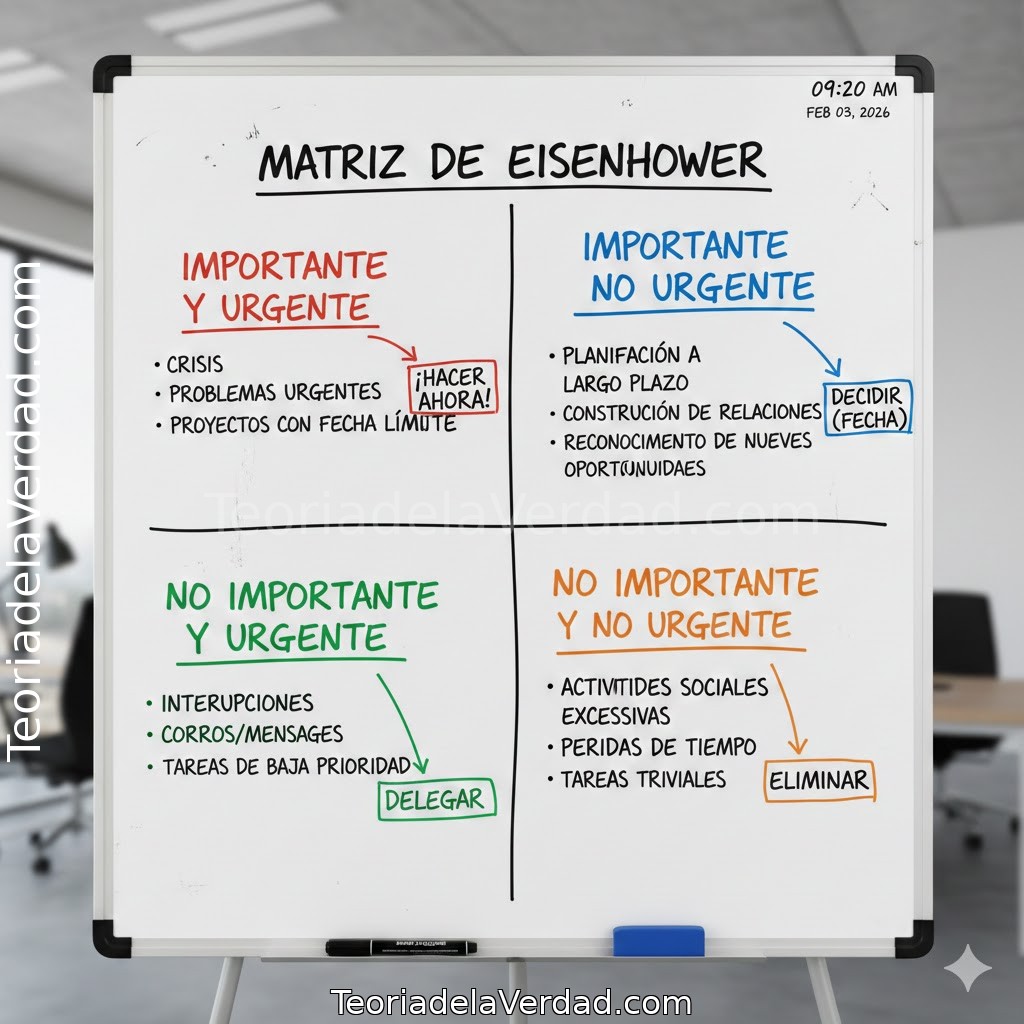 09:20 AM
FEB 03, 2026
MATRIZ DE EISENHOWER
IMPORTANTE
Y URGENTE
• CRISIS
• PROBLEMAS URGENTES
• PROYECTOS CON FECHA LÍMITE
¡HACER
AHORA!
IMPORTANTE
NO URGENTE
• PLANIFACIÓN A
LARGO PLAZO
• CONSTRUCIÓN DE RELACIONES
• RECONOCIMENTO DE NUEVES
DECIDIR
(FECHA)
NO IMPORTANTE
Y URGENTE
• INTERUPCIONES
• CORROS/MENSAGES
• TAREAS DE BAJA PRIORIDAD
DELEGAR
NO IMPORTANTE
Y NO URGENTE
• SOCIALES
EXCESSIVAS
• PERIDAS DE TIEMPO
• TAREAS TRIVIALES
ELIMINAR
TeoriadelaVerdad.com
TeoriadelaVerdad.com
TeoriadelaVerdad.com